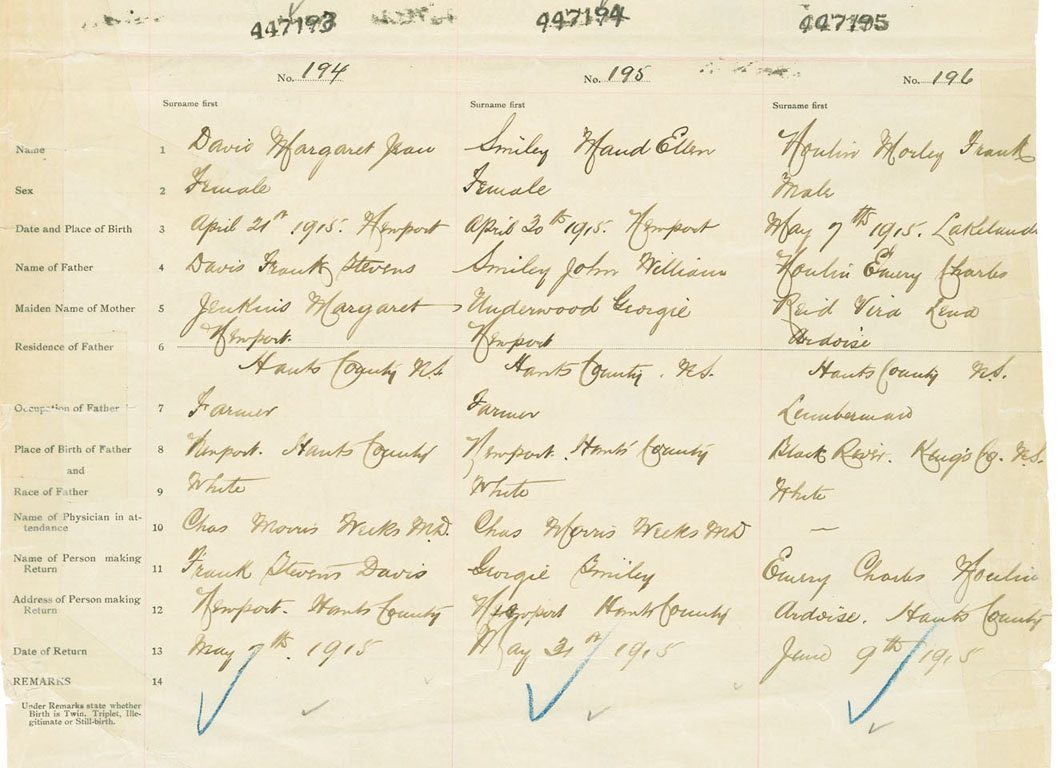 447193 447194 447195
No. 194 No. 195 No. 196
Surname first Surname first Surname first
Name 1 Davis Margaret Jean Smiley Maud Ellen Houlin Morley Frank
Sex 2 Female Female Male
Date and Place of Birth 3 April 21st 1915. Newport April 30th 1915. Newport May 7th 1915. Lakelands
Name of Father 4 Davis Frank Stevens Smiley John William Houlin Emery Charles
Maiden Name of Mother 5 Jenkins Margaret Underwood Georgie Reid Vira Lena
Residence of Father 6 Newport. Newport Ardoise
Hants County N.S. Hants County. N.S. Hants County N.S.
Occupation of Father 7 Farmer Farmer Lumberman
Place of Birth of Father 8 Newport. Hants County Newport. Hants County Black River. King's Co. N.S.
and
Race of Father 9 White White White
Name of Physician in at-
tendance 10 Chas Morris Weeks M.D. Chas Morris Weeks MD —
Name of Person making
Return 11 Frank Stevens Davis Georgie Smiley Emery Charles Houlin
Address of Person making
Return 12 Newport. Hants County Newport Hants County Ardoise. Hants County
Date of Return 13 May 7th. 1915 May 31st 1915 June 9th 1915
REMARKS 14
Under Remarks state whether
Birth is Twin, Triplet, Ille-
gitimate or Still-birth.